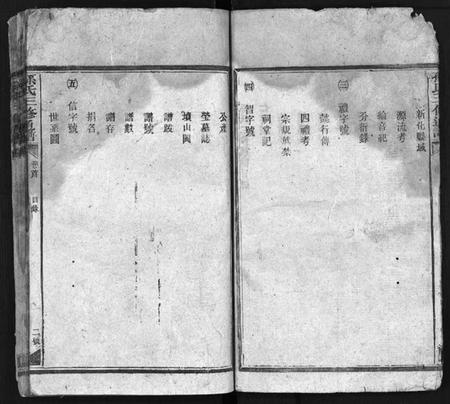 新化縣域
源流考
分衍錄
㈢ 禮字號
懿行傳
四禮考
宗規
祠堂記
四 智字號
公產
塋墓誌
墳山圖
譜跋
譜號
譜數
譜存
捐名
五 信字號
世系圖
氏三修
卷首
目錄
二